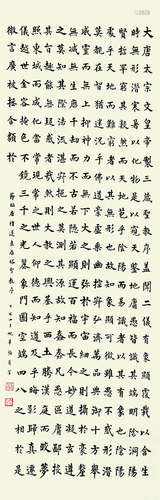 大唐太宗文皇帝製三藏聖教序蓋聞二儀有象顯覆載以含生四
時無形潛寒暑以化物是以窺天鑒地庸愚皆識其端明陰洞陽
賢哲罕窮其數然而天地苞乎陰陽而易識者以其有象也陰陽
處乎天地而難窮者以其無形也故知象顯可徵雖愚不惑形潛
莫覩在智猶迷況乎佛道崇虛乘幽控寂弘濟萬品典御十方舉
威靈而無上抑神力而無下大之則彌於宇宙細之則攝於毫釐無
滅無生歷千劫而不古若隱若顯運百福而長今妙道凝玄遵
之莫知其際法流湛寂挹之莫測其源故知蠢蠢凡愚區區庸鄙投
其旨趣能無疑惑者哉然則大教之興基乎西土騰漢庭而皎夢
照東域而流慈昔者分形分跡之時言未馳
而成化當常現常之世人仰德而知遵及乎晦影歸真遷
儀越世金容掩色不鏡三千之光麗象開圖空端四八之相於是
微言廣被拯含類於